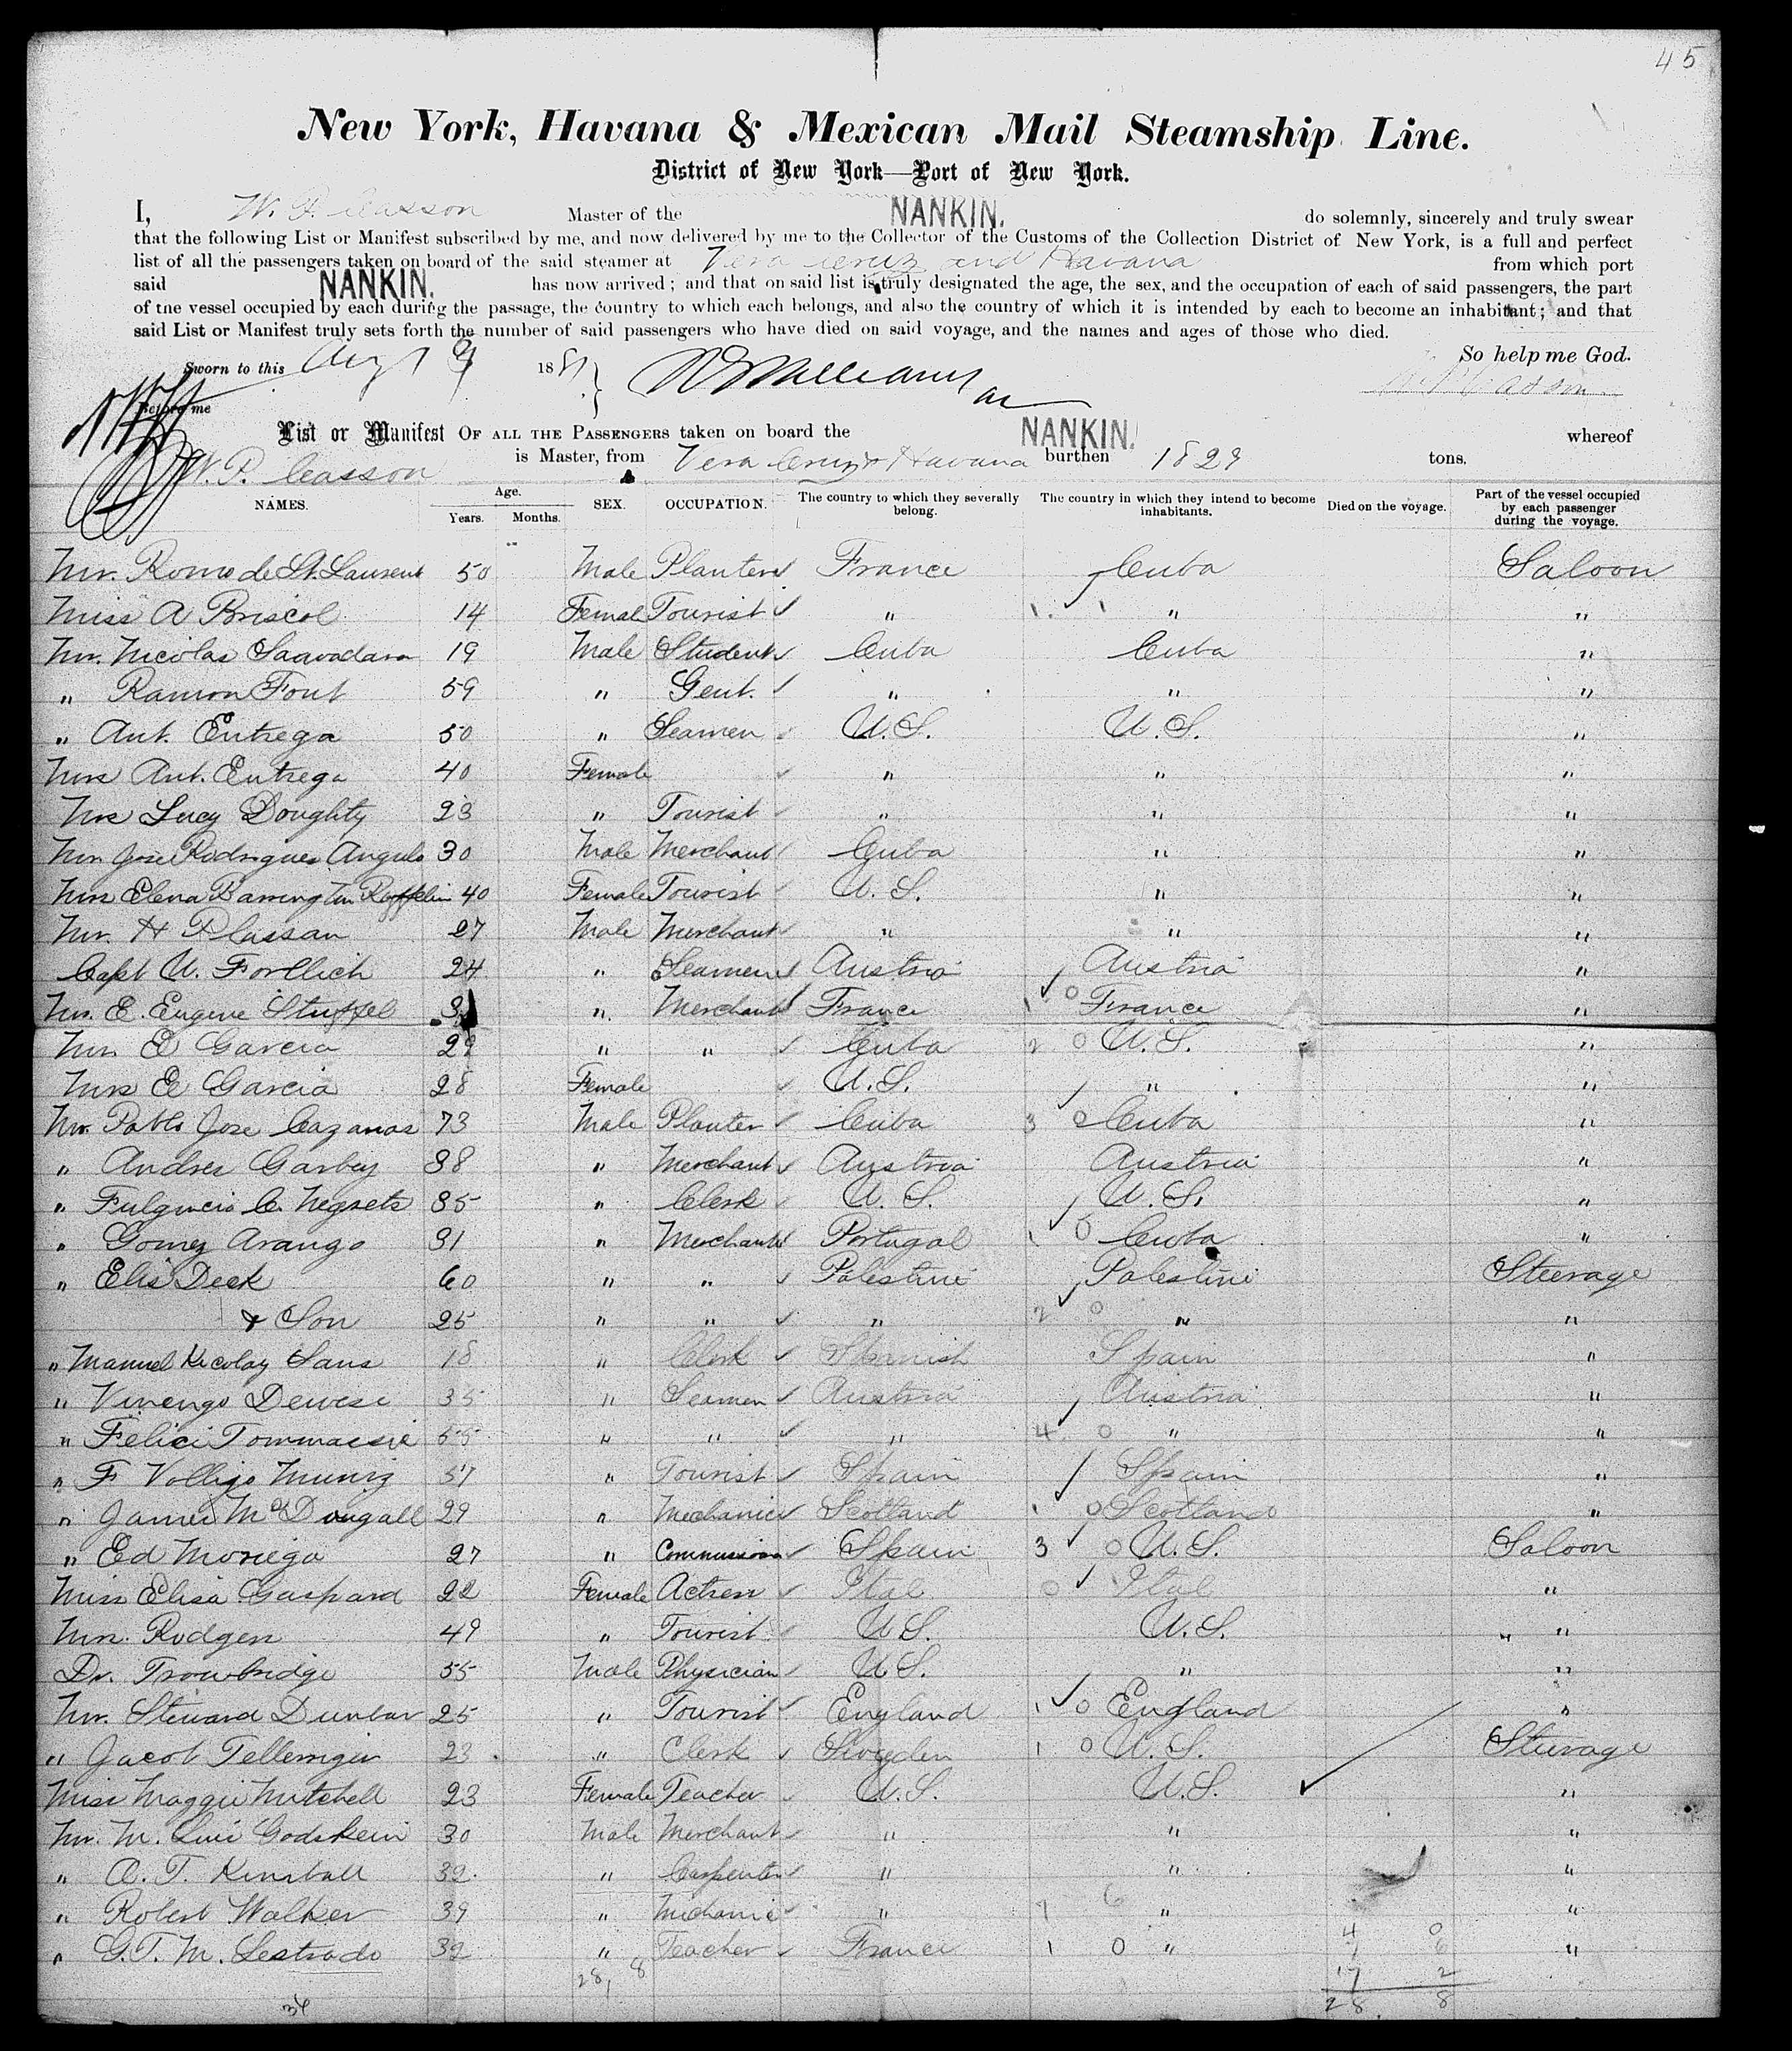 45
New York, Havana & Mexican Mail Steamship Line.
District of New York—Port of New York.
I, W. P. Casson Master of the NANKIN. do solemnly, sincerely and truly swear
that the following List or Manifest subscribed by me, and now delivered by me to the Collector of the Customs of the Collection District of New York, is a full and perfect
list of all the passengers taken on board of the said steamer at Vera Cruz and Havana from which port
said NANKIN. has now arrived; and that on said list is truly designated the age, the sex, and the occupation of each of said passengers, the part
of the vessel occupied by each during the passage, the country to which each belongs, and also the country of which it is intended by each to become an inhabitant; and that
said List or Manifest truly sets forth the number of said passengers who have died on said voyage, and the names and ages of those who died.
So help me God.
Sworn to this Aug 9 1881
W. P. Casson
Before me
List or Manifest OF ALL THE PASSENGERS taken on board the NANKIN. whereof
W. P. Casson is Master, from Vera Cruz & Havana burthen 1829 tons.
NAMES. Age. Years. Months. SEX. OCCUPATION. The country to which they severally belong. The country in which they intend to become inhabitants. Died on the voyage. Part of the vessel occupied by each passenger during the voyage.
Mr. Romo de St. Laurent 50 Male Planter France Cuba Saloon
Miss A Briscol 14 Female Tourist " " "
Mr. Nicolas Saavadara 19 Male Student Cuba Cuba "
" Ramon Font 59 " Gent. " " "
" Ant. Entrega 50 " Seamen U.S. U.S. "
Mrs Ant. Entrega 40 Female " " "
Mrs Lucy Doughty 23 " Tourist " " "
Mr Jose Rodrigues Angulo 30 Male Merchant Cuba " "
Mrs Elena Barrington 40 Female Tourist U.S. " "
Mr. H Plassan 27 Male Merchant " " "
Capt U. Forllich 24 " Seamen Austria Austria "
Mr. E. Eugene Stuffel " Merchant France 1 0 France "
Mr E Garcia 29 " " Cuba 2 0 U.S. "
Mrs E Garcia 28 Female U.S. " "
Mr. Pablo Jose Cazanas 73 Male Planter Cuba 3 0 Cuba "
" Andres Garbey 38 " Merchant Austria Austria "
" Fulgincio C. Negrete 35 " Clerk U.S. U.S. "
" Gomez Arango 31 " Merchant Portugal 1 0 Cuba "
" Elis Deek 60 " " Palestine Palestine Steerage
& Son 25 " " " 2 0 " "
" Manuel Nicolay Sans 18 " Clerk Spanish Spain "
" Vinengo Dewese 35 " Seamen Austria Austria "
" Felici Tommassie 55 " " " 4 0 " "
" F Volligo Muniz 57 " Tourist Spain Spain "
" James McDougall 29 " Mechanic Scotland 1 0 Scotland "
" Ed Moriega 27 " Commission Spain 3 0 U.S. Saloon
Miss Elisa Gaspard 22 Female Actress Ital 0 Ital "
Mrs. Rodgers 49 " Tourist U S. U.S. " "
Dr. Trowbridge 55 Male Physician U S. " "
Mr. Steward Dunbar 25 " Tourist England 1 0 England "
" Jacob Tellemgier 23 " Clerk Sweden 1 0 U.S. Steerage
Miss Maggie Mitchell 23 Female Teacher U.S. U.S. "
Mr. M. Luis Godskein 30 Male Merchant " " "
" A. T. Kimball 32 " Carpenter " " "
" Robert Walker 39 " Mechanic " 7 6 " "
" G. T. M. Lestrado 32 " Teacher France 1 0 " "
4 0
7 6
17 2
28 8
28, 8